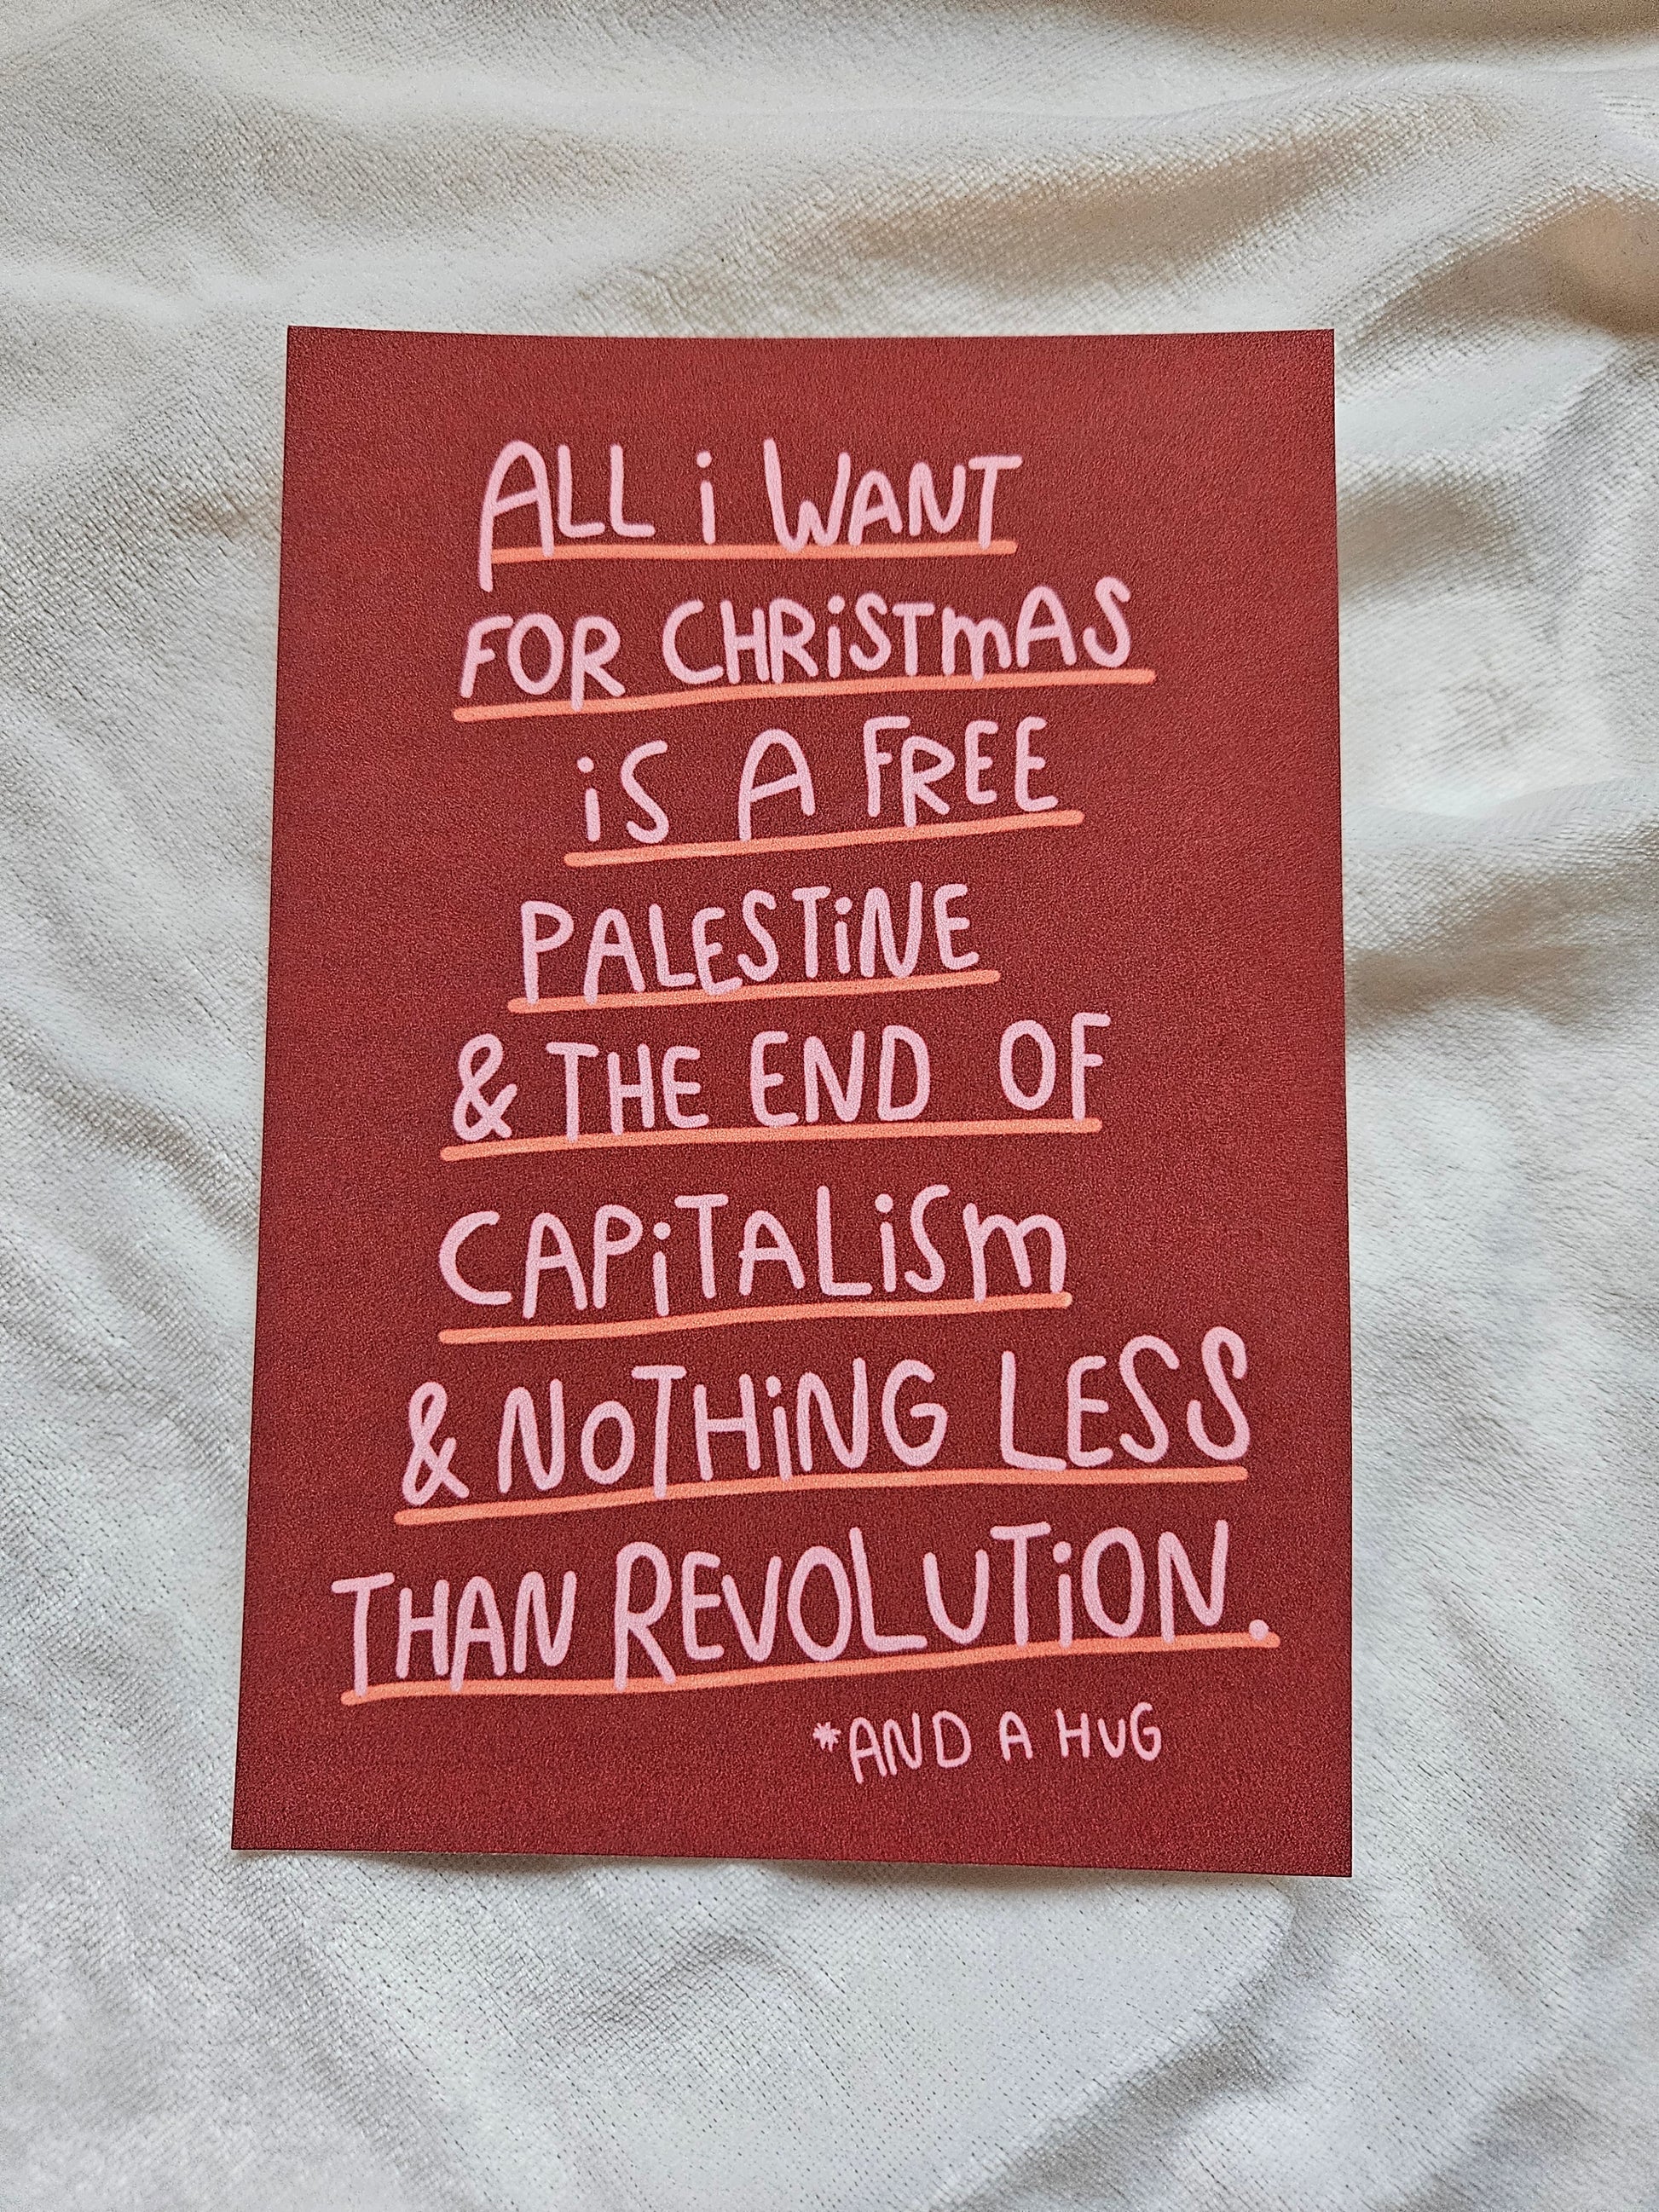 ALL i WANT
FOR CHRiSTmAS
iS A FREE
PALESTiNE
& THE END OF
CAPiTALiSm
& NoTHiNG LESS
THAN REVOLUTiON.
*AND A HUG